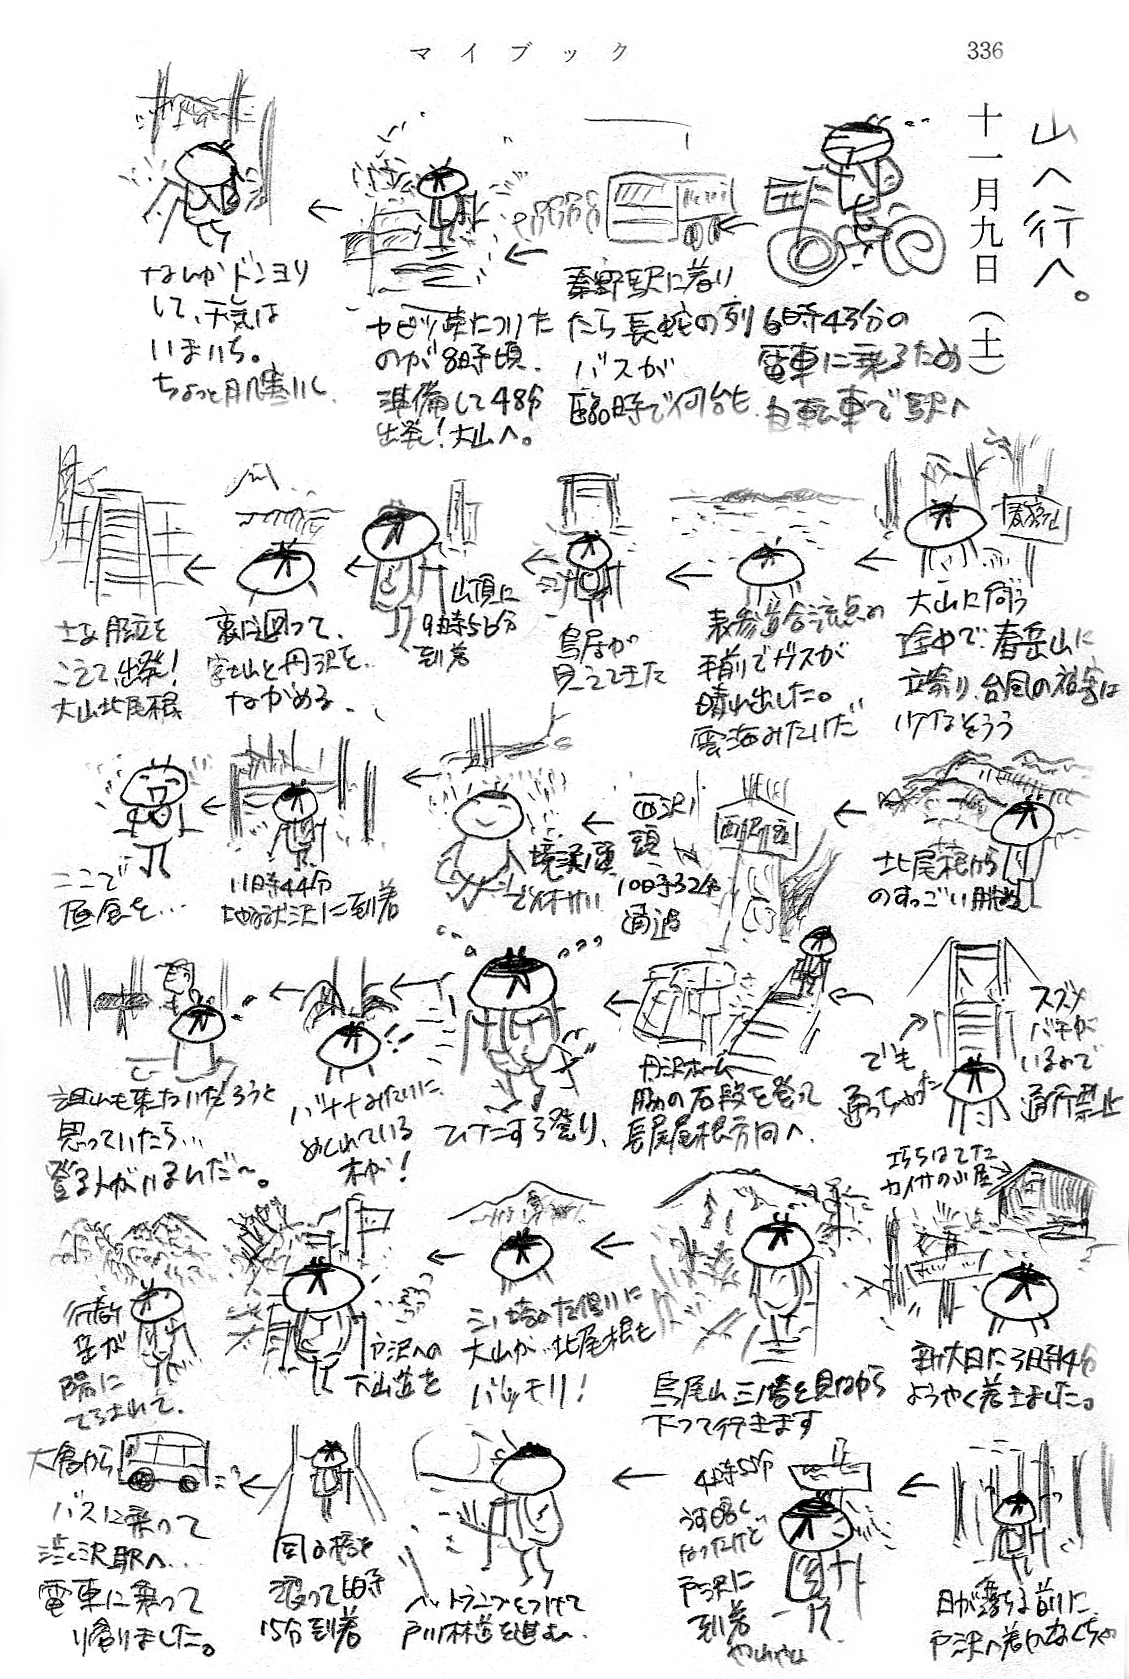 マイブック
336
山へ行へ。
十一月九日（土）
6時43分の
電車に乗るため
自転車で駅へ
秦野駅に着い
たら長蛇の列
バスが
臨時で何台も
ヤビツ峠についた
のが8時頃、
準備して48分
出発！大山へ。
なんかドンヨリ
して、天気は
いまいち。
ちょっと肌寒いし
春岳山
大山に向う
途中で、春岳山に
立寄り、台風の被害は
いけなそうう
表参道合流点の
手前でガスが
晴れ出した。
雲海みたいだ
鳥居が
見えてきた
山頂に
9時56分
到着
裏に回って、
富士山と丹沢を、
ながめる、
出発！
大山北尾根
北尾根から
のすっごい眺め
西沢ノ頭
10時32分
通過
境沢ノ頭
で休けい
11時44分
地獄沢に到着
ここで
昼食を…
スズメ
バチが
いるので
通行禁止
でも
通っちゃった
丹沢ホーム
脇の石段を登って
長尾尾根方向へ、
ひたすら登り、
バナナみたいに
めくれている
木が！
誰も来ないだろうと
思っていたら…
登る人がいるんだ〜。
朽ちはてた
カイサクの小屋
新大日に3時14分
ようやく着きました。
鳥尾山三ノ塔を見ながら
下って行きます
三ノ塔の左側に
大山が、北尾根も
バッチリ！
戸沢への
下山道を
行者
岳が
陽に
てらされて、
日が落ちる前に
戸沢へ着かなくちゃ
4時50分
うす暗く
なったけど
戸沢に
到着
やれやれ
ヘッドランプをつけて
戸川林道を進む、
風の橋を
渡って6時
15分到着
大倉から
バスに乗って
渋沢駅へ…
電車に乗って
り帰りました。